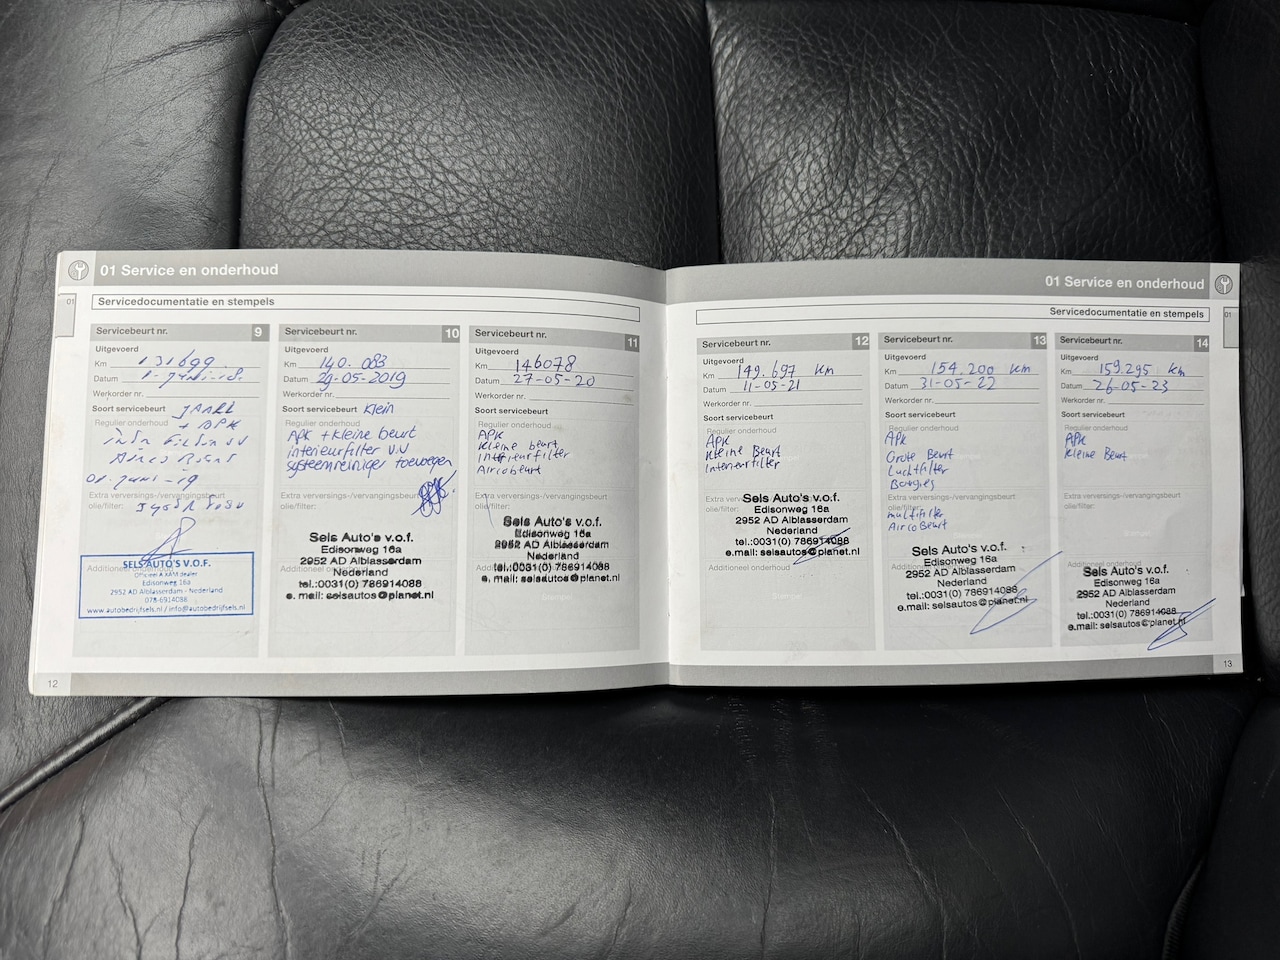 01 Service en onderhoud
01
Servicedocumentatie en stempels
Servicebeurt nr. 9
Uitgevoerd
Km 131699
Datum 1-juni-18.
Werkorder nr.
Soort servicebeurt
Regulier onderhoud + APK
Extra verversings-/vervangingsbeurt
olie/filter:
Additioneel onderhoud
SELS AUTO'S V.O.F.
Edisonweg 16a
2952 AD Alblasserdam - Nederland
078-6914088
www.autobedrijfsels.nl / info@autobedrijfsels.nl
Servicebeurt nr. 10
Uitgevoerd
Km 140.083
Datum 29-05-2019
Werkorder nr.
Soort servicebeurt Klein
Regulier onderhoud
APK + Kleine beurt
interieurfilter v.v
systeemreiniger toevoegen
Extra verversings-/vervangingsbeurt
olie/filter:
Sels Auto's v.o.f.
Edisonweg 16a
2952 AD Alblasserdam
Nederland
tel.:0031(0) 786914088
e. mail: selsautos@planet.nl
Servicebeurt nr. 11
Uitgevoerd
Km 146078
Datum 27-05-20
Werkorder nr.
Soort servicebeurt
Regulier onderhoud
APK
Kleine beurt
Interieurfilter
Aircobeurt
Extra verversings-/vervangingsbeurt
olie/filter:
Sels Auto's v.o.f.
Edisonweg 16a
2952 AD Alblasserdam
Nederland
tel.:0031(0) 786914088
e. mail: selsautos@planet.nl
Stempel
12
01 Service en onderhoud
01
Servicedocumentatie en stempels
Servicebeurt nr. 12
Uitgevoerd
Km 149.697 Km
Datum 11-05-21
Werkorder nr.
Soort servicebeurt
Regulier onderhoud
APK
Kleine Beurt
Interieurfilter
Extra verversings-/vervangingsbeurt
olie/filter:
Sels Auto's v.o.f.
Edisonweg 16a
2952 AD Alblasserdam
Nederland
tel.:0031(0) 786914088
e.mail: selsautos@planet.nl
Additioneel onderhoud
Servicebeurt nr. 13
Uitgevoerd
Km 154.200 Km
Datum 31-05-22
Werkorder nr.
Soort servicebeurt
Regulier onderhoud
APK
Grote Beurt
Luchtfilter
Bougies
Extra verversings-/vervangingsbeurt
olie/filter:
multifilter
Aircobeurt
Sels Auto's v.o.f.
Edisonweg 16a
2952 AD Alblasserdam
Nederland
tel.:0031(0) 786914088
e.mail: selsautos@planet.nl
Servicebeurt nr. 14
Uitgevoerd
Km 159.295 Km
Datum 26-05-23
Werkorder nr.
Soort servicebeurt
Regulier onderhoud
APK
Kleine Beurt
Extra verversings-/vervangingsbeurt
olie/filter:
Additioneel onderhoud
Sels Auto's v.o.f.
Edisonweg 16a
2952 AD Alblasserdam
Nederland
tel.:0031(0) 786914088
e.mail: selsautos@planet.nl
13